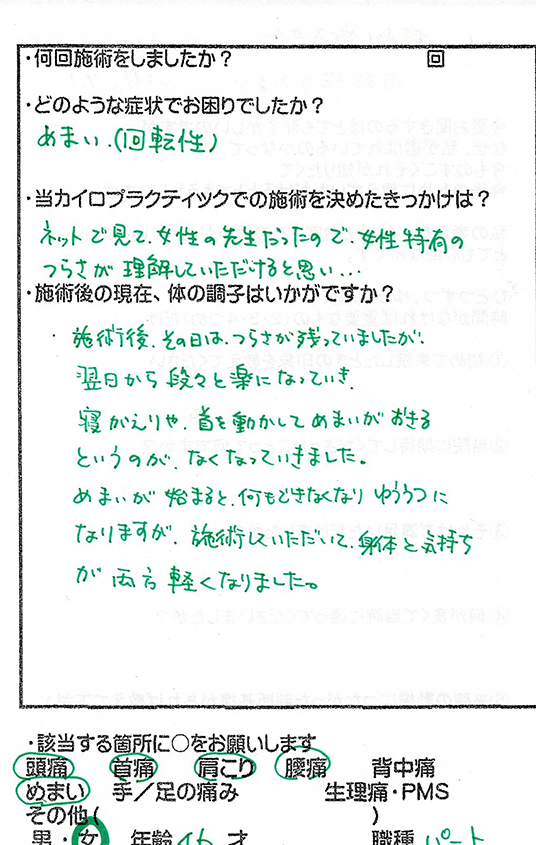 ・何回施術をしましたか？ 回
・どのような症状でお困りでしたか？
めまい.(回転性)
・当カイロプラクティックでの施術を決めたきっかけは？
ネットで見て、女性の先生だったので、女性特有の
つらさが理解していただけると思い...
・施術後の現在、体の調子はいかがですか？
・施術後、その日は、つらさが残っていましたが、
翌日から段々と楽になっていき、
寝がえりや、首を動かしてめまいがおきる
というのが、なくなっていきました。
めまいが始まると、何もできなくなりゆううつに
なりますが、施術していただいて、身体と気持ち
が両方軽くなりました。
・該当する箇所に○をお願いします
頭痛 首痛 肩こり 腰痛 背中痛
めまい 手／足の痛み 生理痛・PMS
その他( )
男・女 年齢 才 職種 パート